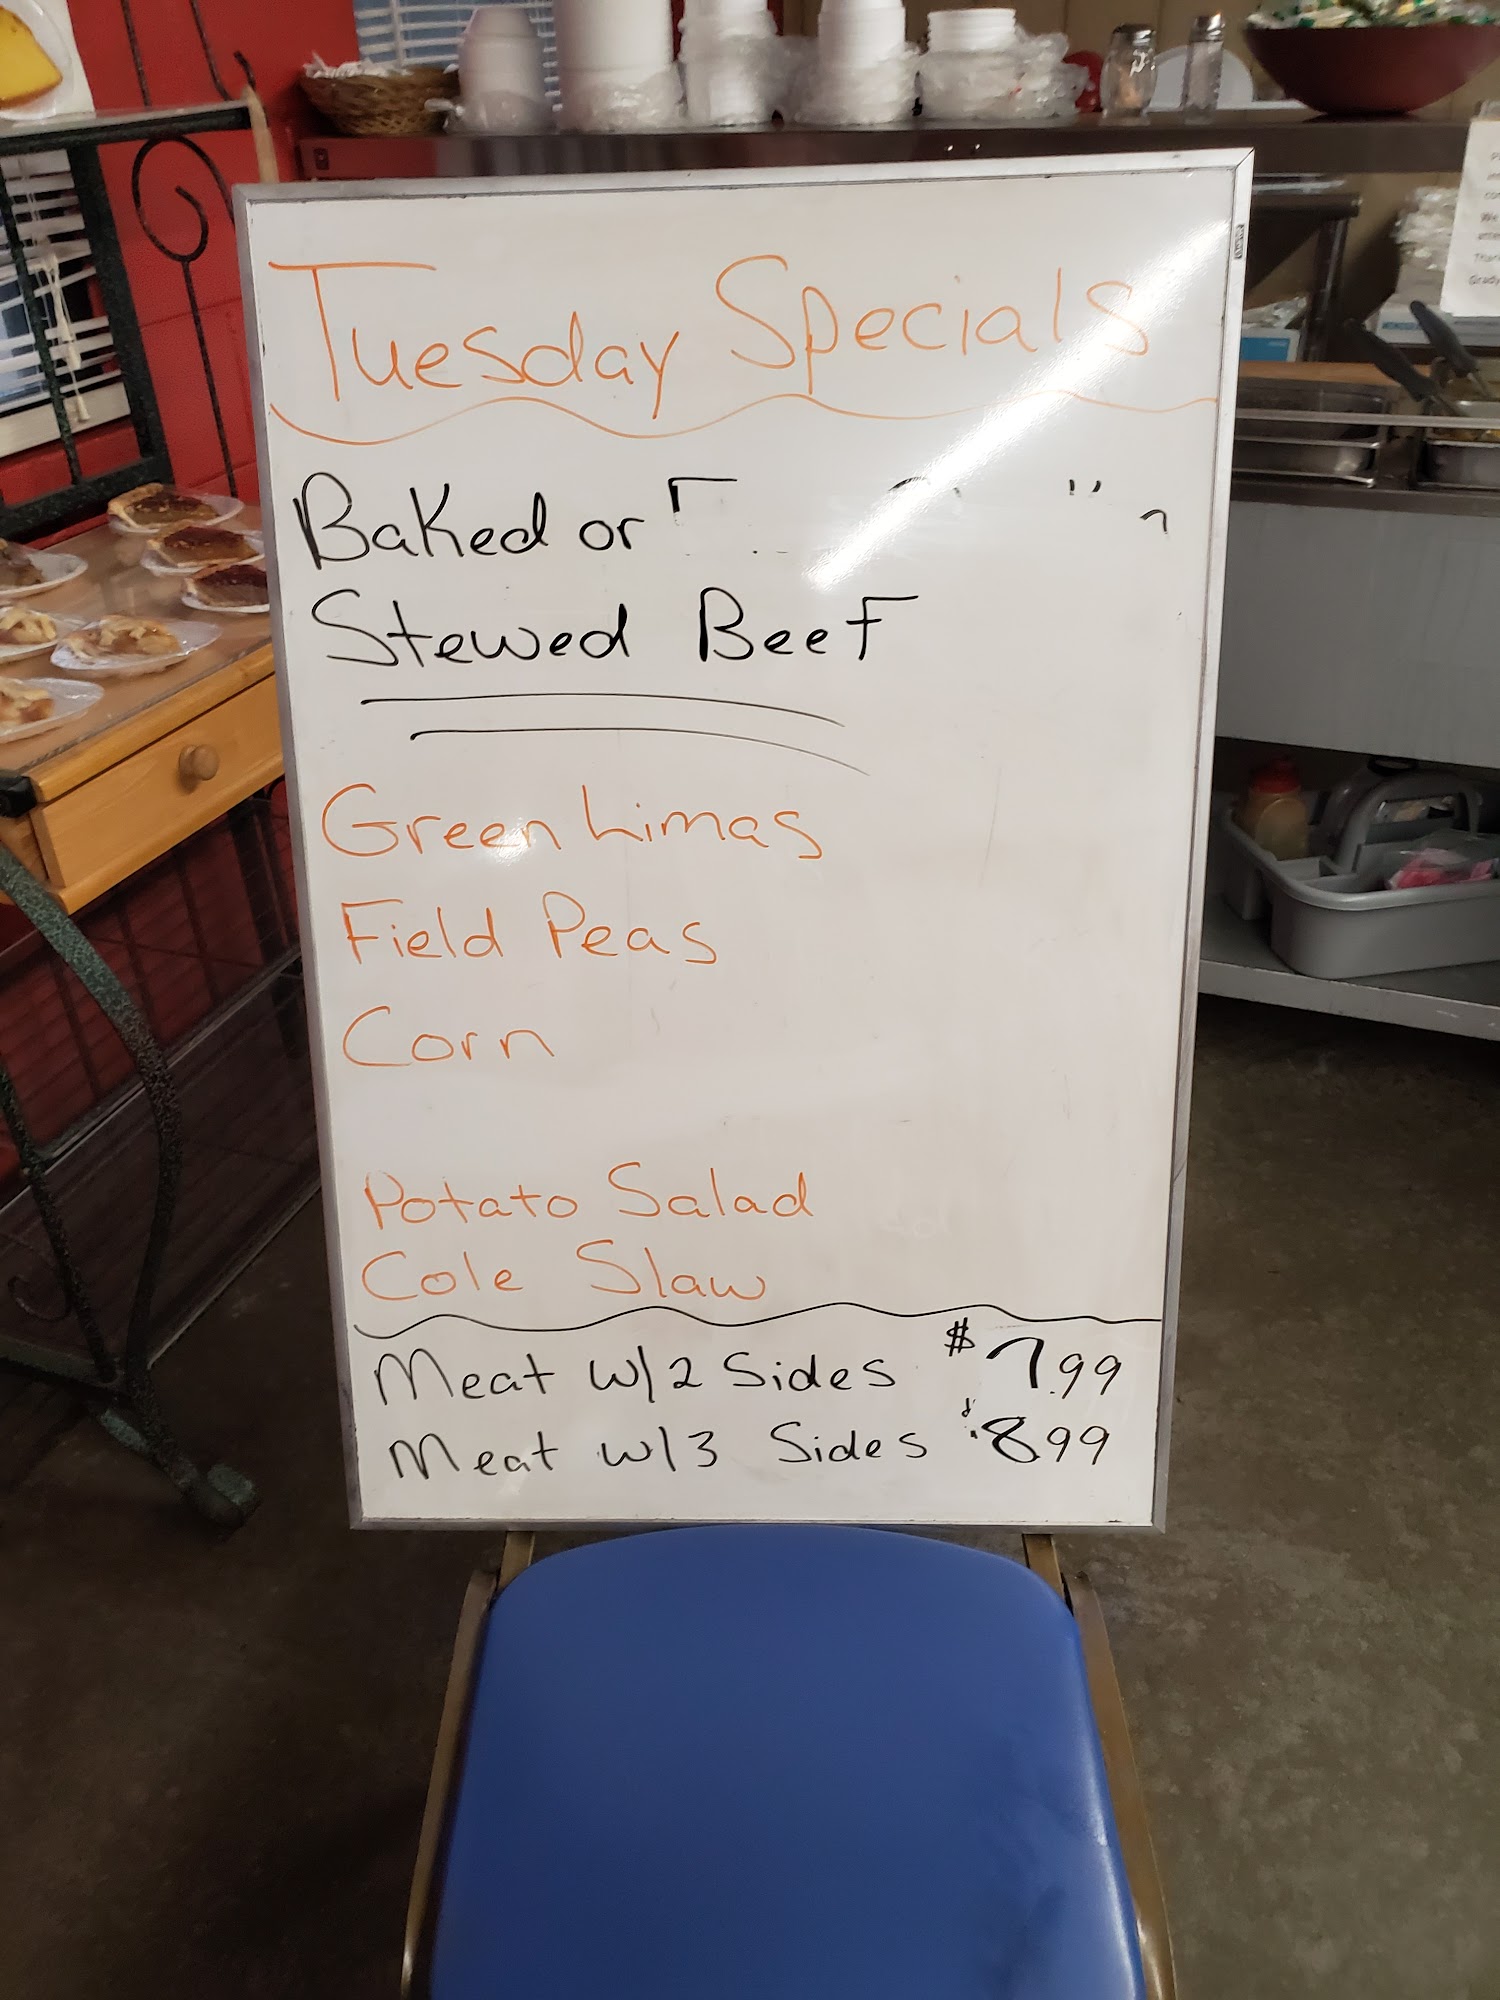 Tuesday Specials
Baked or
Stewed Beef
Green Limas
Field Peas
Corn
Potato Salad
Cole Slaw
Meat w/2 Sides $7.99
Meat w/3 Sides $8.99